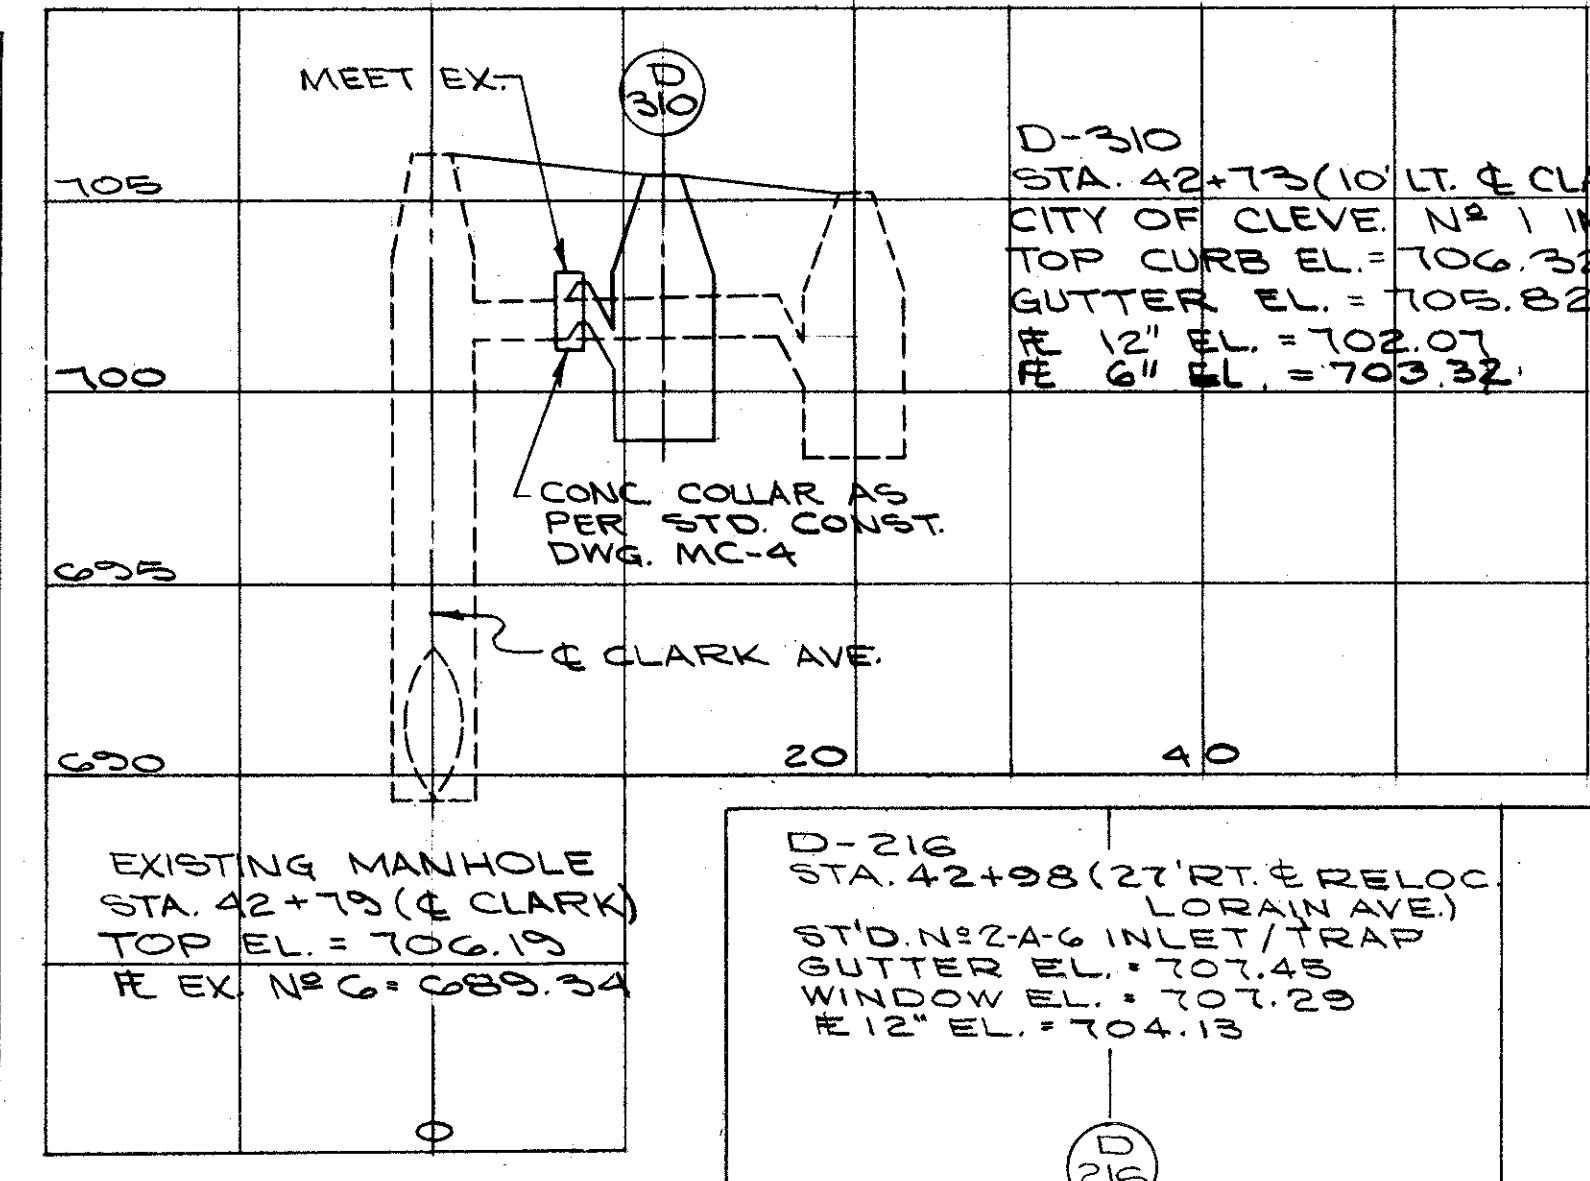 MEET EX.
D
310
D-310
STA. 42+73 (10' LT. ℄
CITY OF CLEVE. Nº 1
TOP CURB EL. = 706.32
GUTTER EL. = 705.82
℄ 12" EL. = 702.07
℄ 6" EL. = 703.32
705
700
CONC. COLLAR AS
PER STD. CONST.
DWG. MC-4
695
℄ CLARK AVE.
690
20
40
EXISTING MANHOLE
STA. 42+79 (℄ CLARK)
TOP EL. = 706.19
℄ EX. Nº 6 = 689.34
0
D-216
STA. 42+98 (27' RT. ℄ RELOC.
LORAIN AVE.)
ST'D. Nº 2-A-6 INLET/TRAP
GUTTER EL. = 707.45
WINDOW EL. = 707.29
℄ 12" EL. = 704.13
D
216